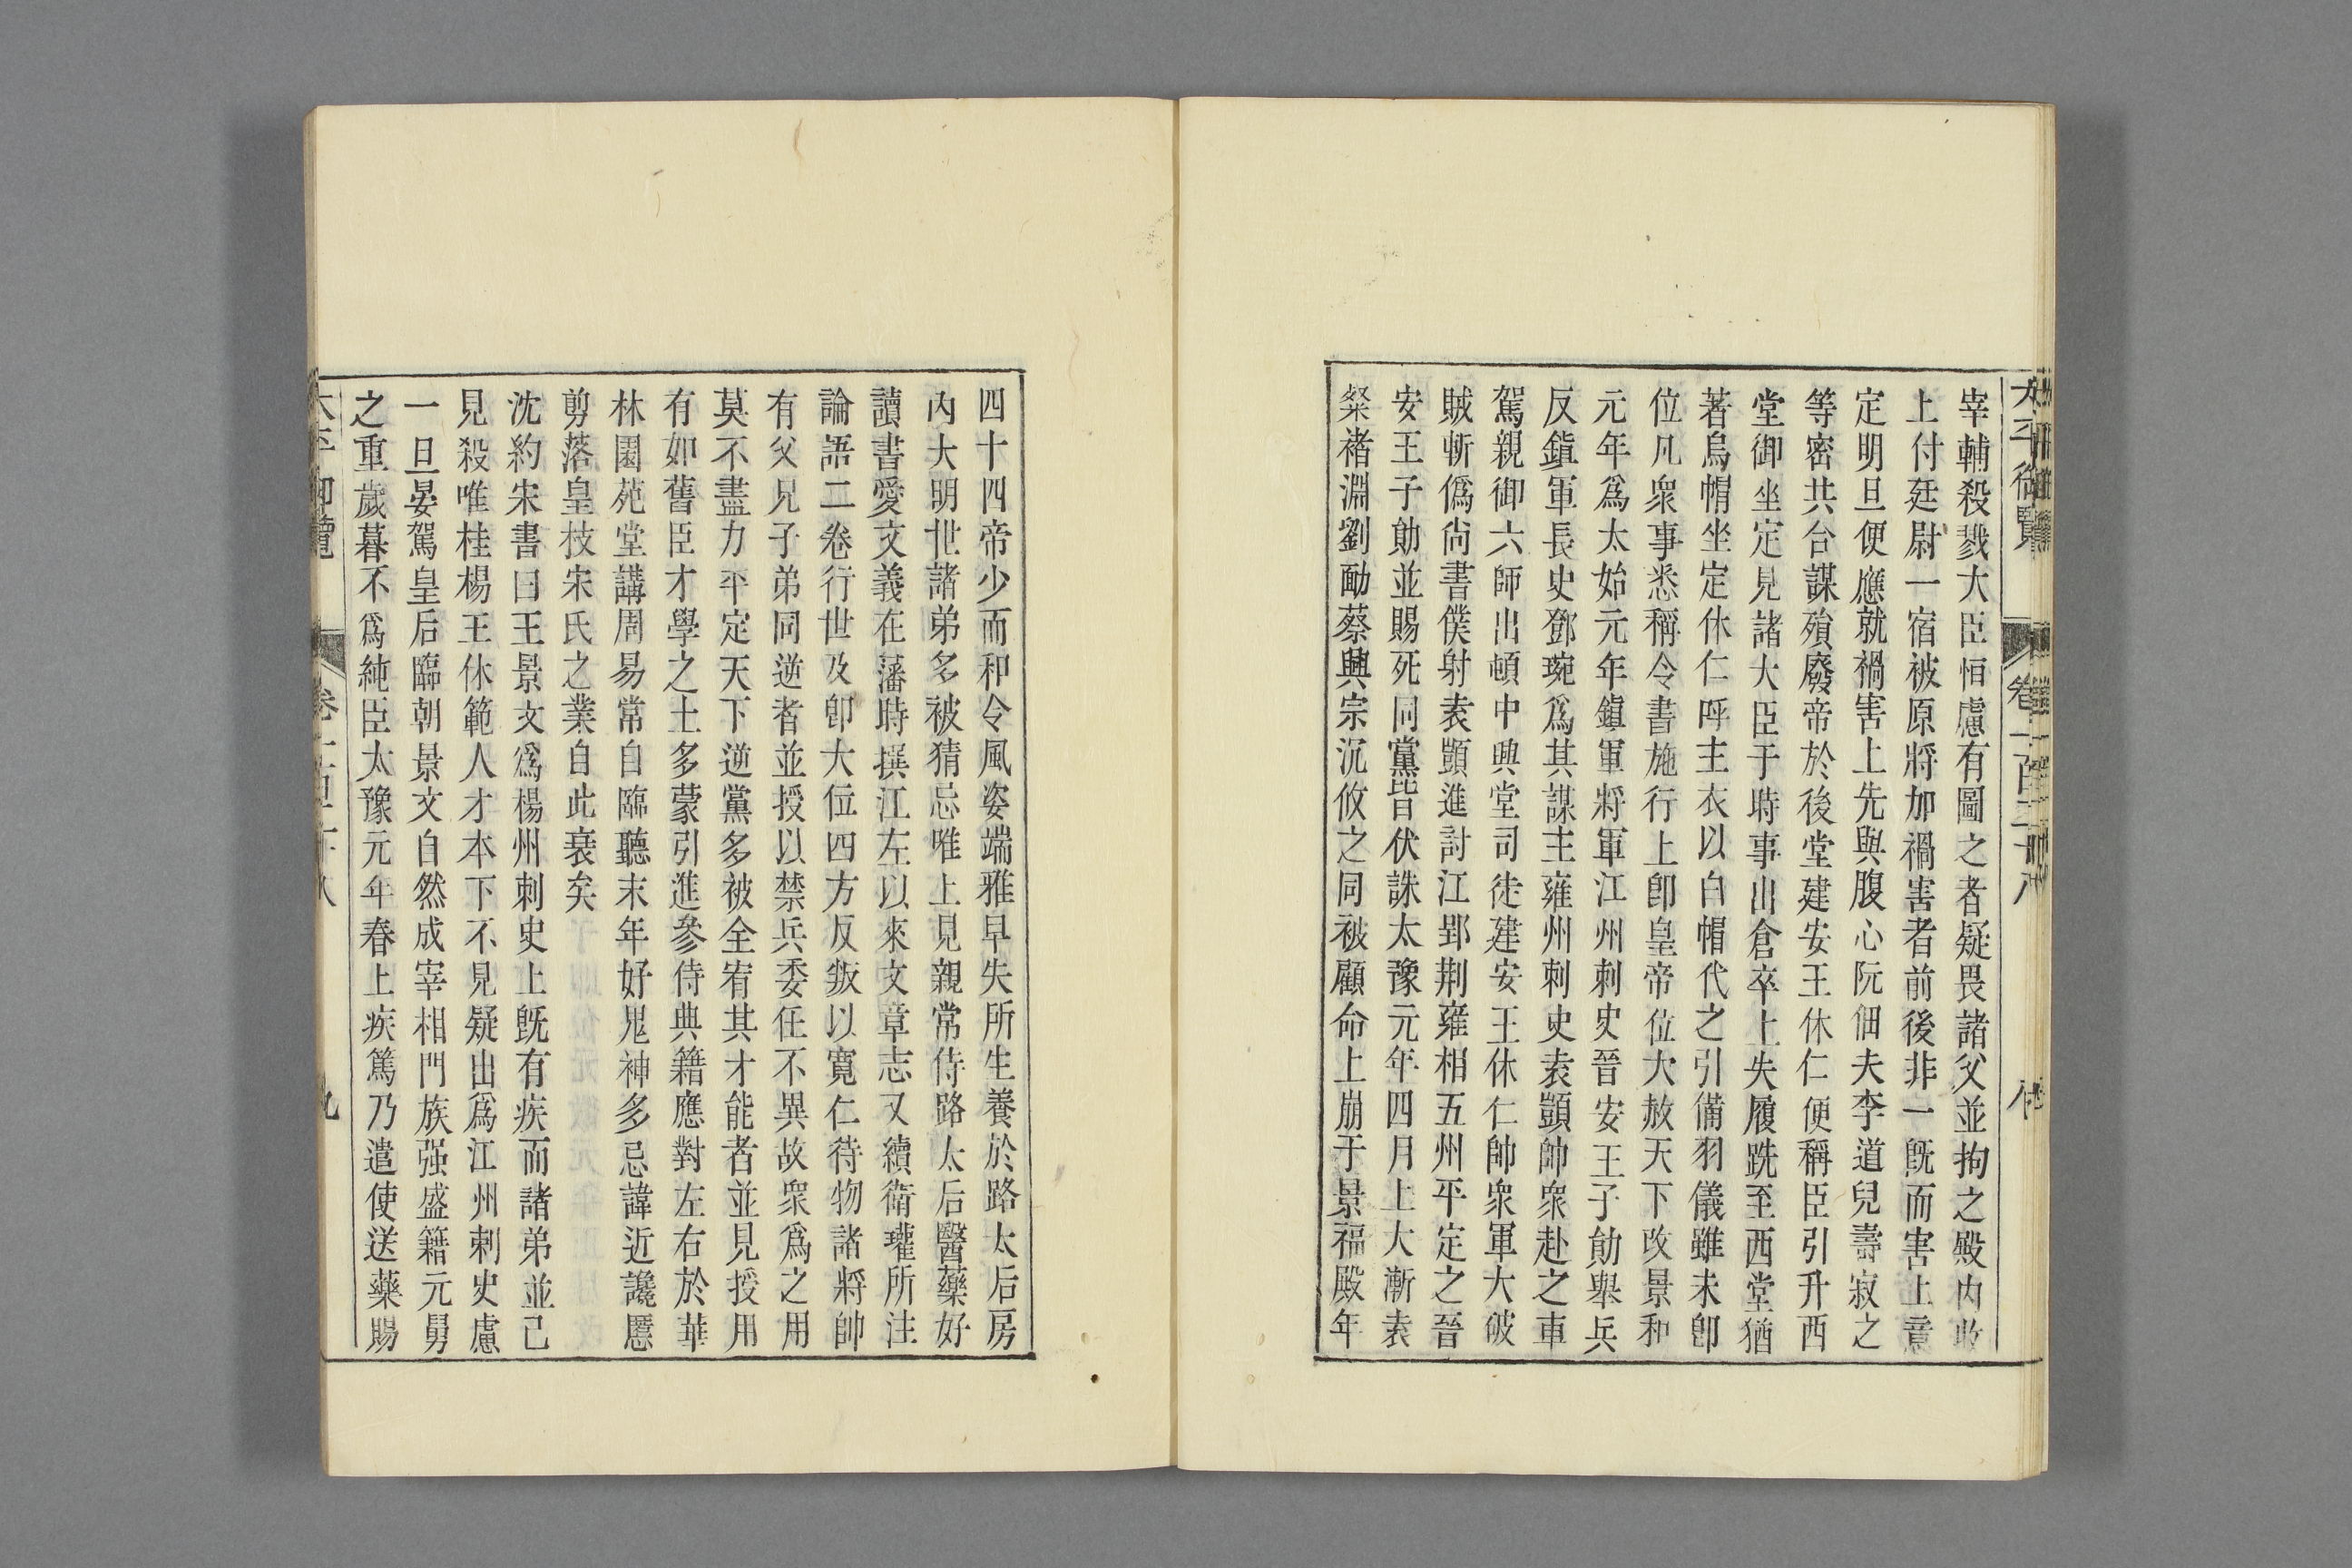 太平御覽 卷一百二十八
宰輔殺戮大臣恒慮有圖之者疑畏諸父並拘之殿內
上付廷尉一宿被原將加禍害者前後非一旣而害上意
定明旦便應就禍害上先與腹心阮佃夫李道兒壽寂之
等密共合謀殞廢帝於後堂建安王休仁便稱臣引升西
堂御坐定見諸大臣于時事出倉卒上失履跣至西堂猶
著烏帽坐定休仁呼主衣以白帽代之引備羽儀雖未卽
位凡衆事悉稱令書施行上卽皇帝位大赦天下改景和
元年爲太始元年鎭軍將軍江州刺史晉安王子勛舉兵
反鎭軍長史鄧琬爲其謀主雍州刺史袁顗帥衆赴之車
駕親御六師出頓中興堂司徒建安王休仁帥衆軍大破
賊斬僞尙書僕射袁顗進討江郢荆雍相五州平定之晉
安王子勛並賜死同黨皆伏誅太豫元年四月上大漸袁
粲褚淵劉勔蔡興宗沉攸之同被顧命上崩于景福殿年
四十四帝少而和令風姿端雅早失所生養於路太后房
內大明世諸弟多被猜忌唯上見親常侍路太后醫藥好
讀書愛文義在藩時撰江左以來文章志又續衛瓘所注
論語二卷行世及卽大位四方反叛以寬仁待物諸將帥
有父兄子弟同逆者並授以禁兵委任不異故衆爲之用
莫不盡力平定天下逆黨多被全宥其才能者並見授用
有如舊臣才學之士多蒙引進參侍典籍應對左右於華
林園苑堂講周易常自臨聽末年好鬼神多忌諱近讒慝
剪落皇枝宋氏之業自此衰矣
沈約宋書曰王景文爲楊州刺史上旣有疾而諸弟並己
見殺唯桂楊王休範人才本下不見疑出爲江州刺史慮
一旦晏駕皇后臨朝景文自然成宰相門族强盛籍元舅
之重歲暮不爲純臣太豫元年春上疾篤乃遣使送藥賜
太平御覽 卷一百二十八 九